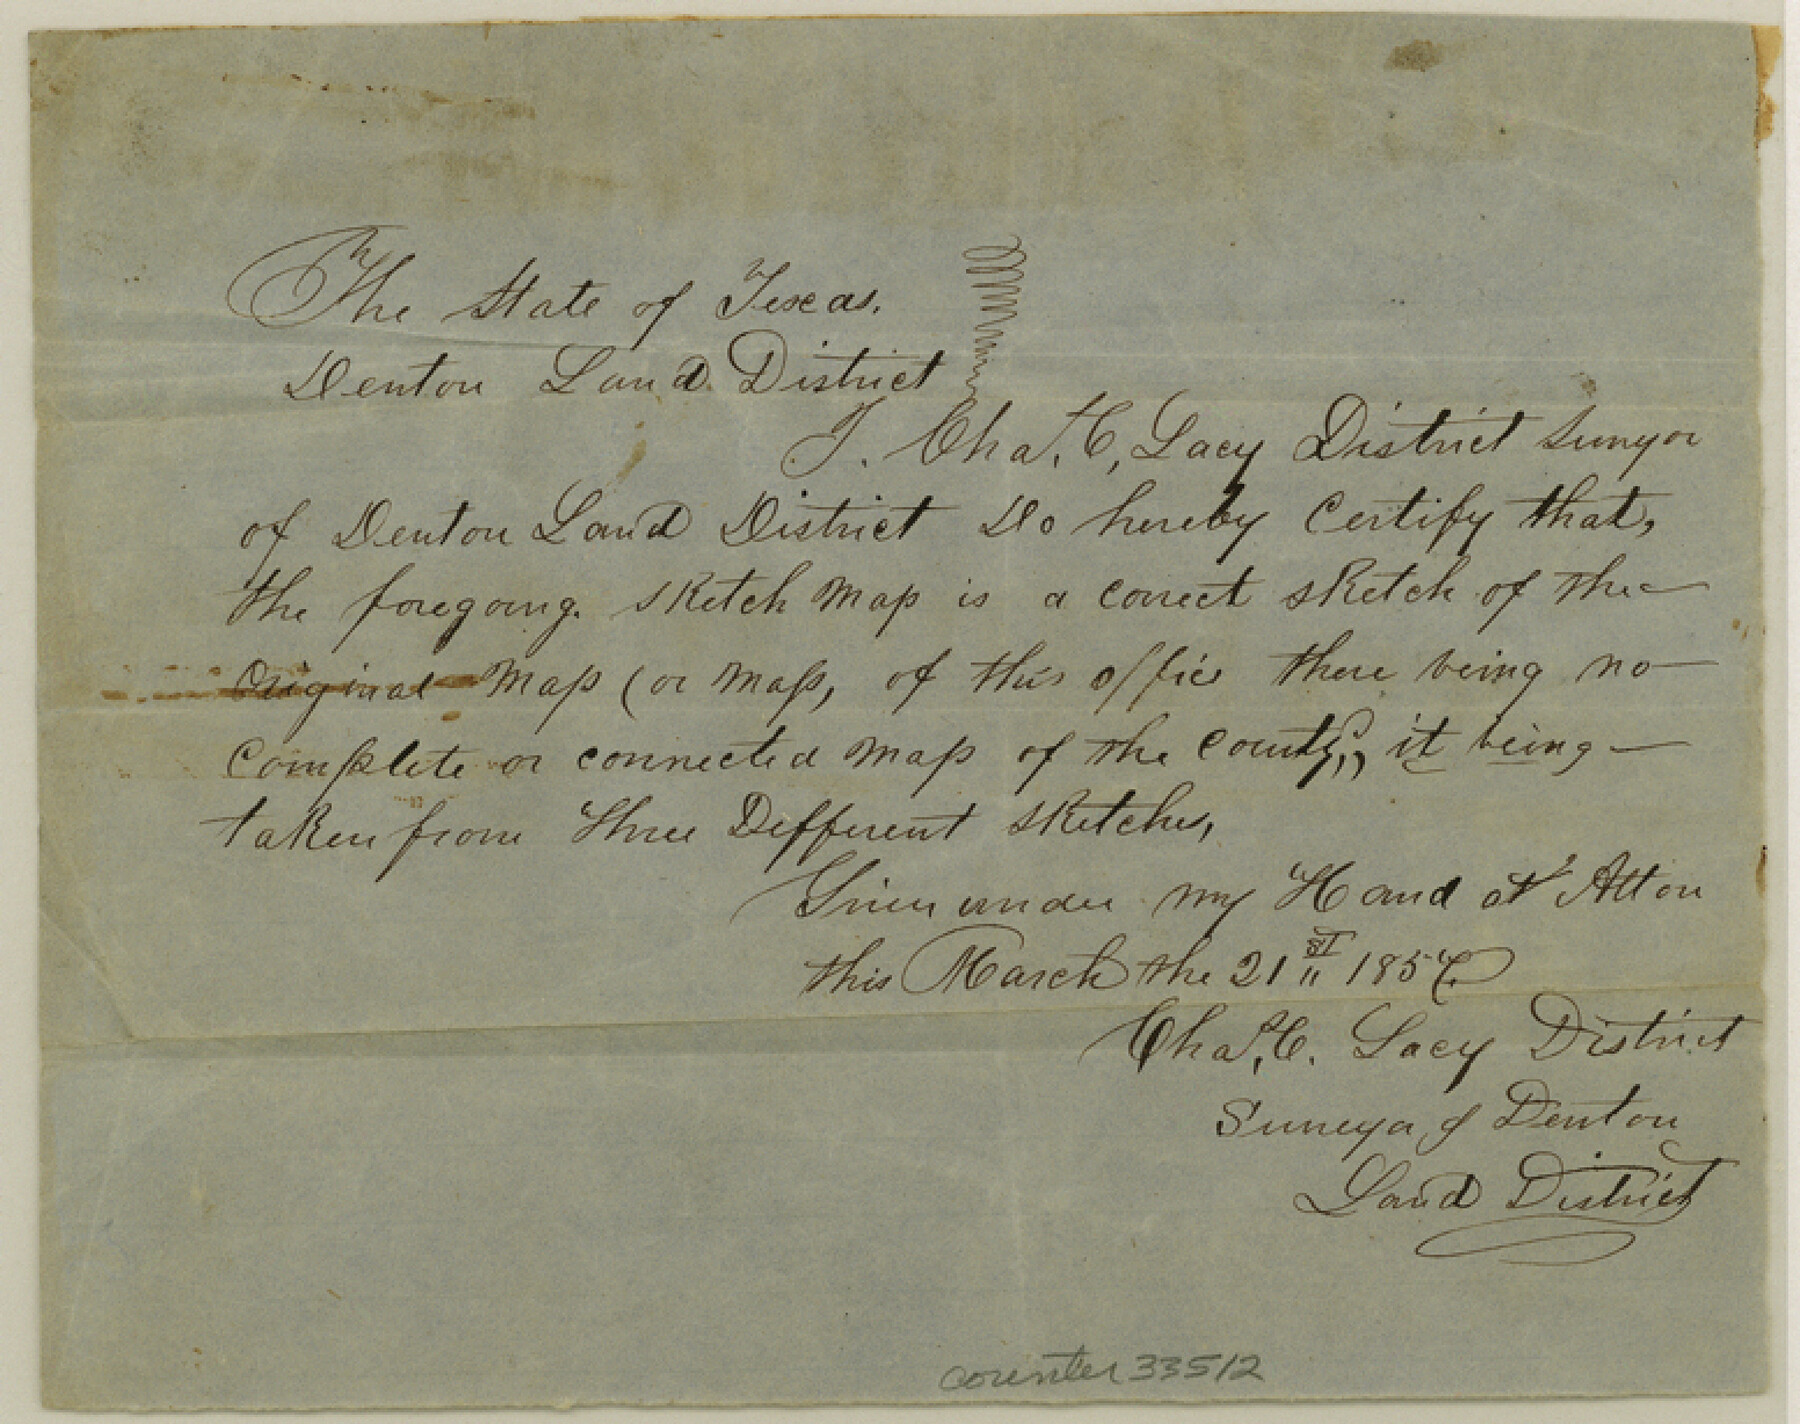 The State of Texas.
Denton Land District
I. Chas. C, Lacy District Survyor
of Denton Land District Do hereby Certify that,
the foregoing. sketch Map is a correct sketch of the
Original Map (or Maps, of this office there being no
Complete or connected Map of the County,, it being
taken from three Defferent sketches,
Given under my Hand at Alton
this March the 21st
Chas. C. Lacy District
Surveyor of Denton
Land District
counter 33512